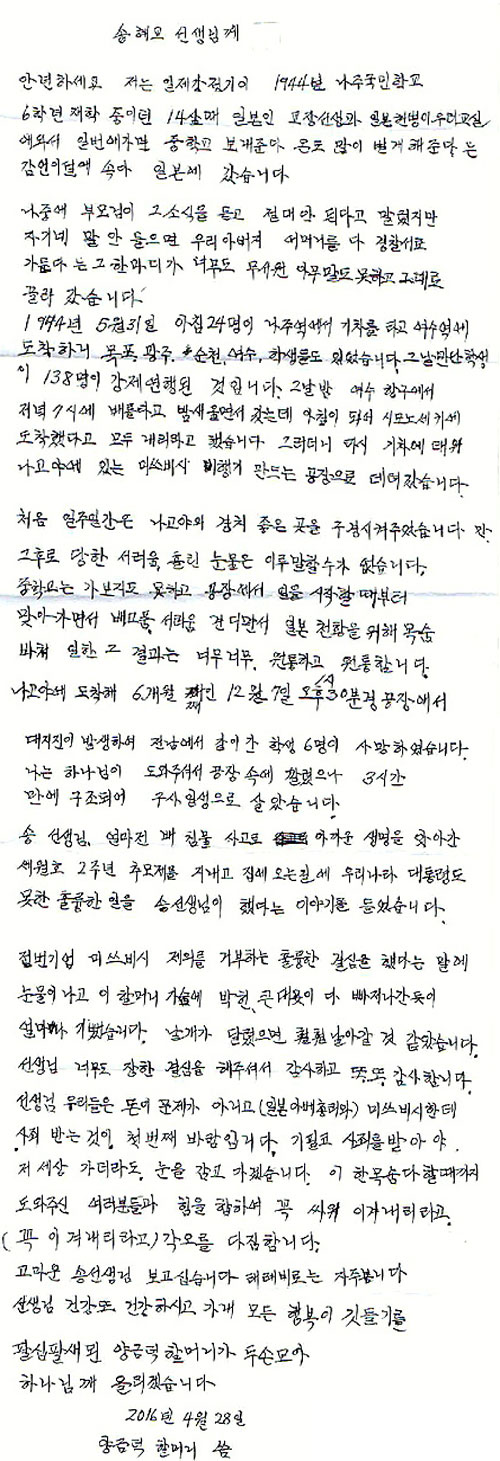 송혜교 선생님께
안녕하세요 저는 일제강점기인 1944년 나주국민학교
6학년 재학 중이던 14살때 일본인 교장선생과 일본헌병이 우리교실
에와서 일번에가면 중학교 보내준다 돈도 많이 벌게 해준다 는
감언이설에 속아 일본에 갔습니다
나중에 부모님이 그소식을 듣고 절대안 된다고 말렸지만
자기네 말 안 들으면 우리아버지 어머니를 다 경찰서로
가둔다 는 그 한마디가 너무도 무서워 아무말도 못하고 그대로
끌려 갔습니다
1944년 5월31일 아침 24명이 나주역에서 기차를 타고 여수역에
도착하니 목포, 광주, 순천, 여수, 학생들도 있었습니다. 그날만 학생
이 138명이 강제연행된 것입니다. 그날밤 여수 항구에서
저녁 7시에 배를타고 밤새 울면서 갔는데 아침이 되서 시모노세키에
도착했다고 모두 내리라고 했습니다 그러더니 다시 기차에 태워
나고야에 있는 미쓰비시 비행기 만드는 공장으로 데려갔습니다.
처음 일주일간은 나고야의 경치 좋은 곳을 구경시켜주었습니다 만.
그후로 당한 서러움, 흘린 눈물은 이루말할수가 없습니다.
중학교는 가보지도 못하고 공장에서 일을 시작할 때부터
맞아가면서 배고픔, 서러움 견디면서 일본 천황을 위해 목숨
바쳐 일한 그 결과는 너무너무, 원통하고 원통합니다.
나고야에 도착해 6개월 째인 12월 7일 오후 1시 30분경 공장에서
대지진이 발생하여 전남에서 같이간 학생 6명이 사망하였습니다.
나는 하나님이 도와주셔서 공장 속에 깔렸으나 3시간
만에 구조되어 구사일생으로 살았습니다.
송 선생님, 얼마전 배 침몰 사고로 아까운 생명을 앗아간
세월호 2주년 추모제를 지내고 집에 오는길에 우리나라 대통령도
못한 훌륭한 일을 송선생님이 했다는 이야기를 들었습니다.
전범기업 미쓰비시 제의를 거부하는 훌륭한 결심을 했다는 말에
눈물이나고 이 할머니 가슴에 박힌 큰 대못이 다 빠져나간듯이
얼마나 기뻤습니다. 날개가 달렸으면 훨훨 날아갈 것 같았습니다.
선생님 너무도 장한 결심을 해주셔서 감사하고 또, 또, 감사합니다.
선생님 우리들은 돈이 문제가 아니고 (일본아베총리와) 미쓰비시한테
사죄 받는것이 첫번째 바람입니다. 기필코 사죄를 받아야
저 세상 가더라도 눈을 감고 가겠습니다. 이 한목숨 다 할때까지
도와주신 여러분들과 힘을 합하여 꼭 싸워 이겨내리라고.
(꼭 이겨내리라고) 각오를 다짐합니다.
고마운 송선생님 보고십습니다 테레비로는 자주봅니다
선생님 건강 또 건강하시고 가내 모든 행복이 깃들기를
팔십팔세된 양금덕 할머니가 두손모아
하나님께 올리겠습니다
2016년 4월 28일
양금덕 할머니 씀